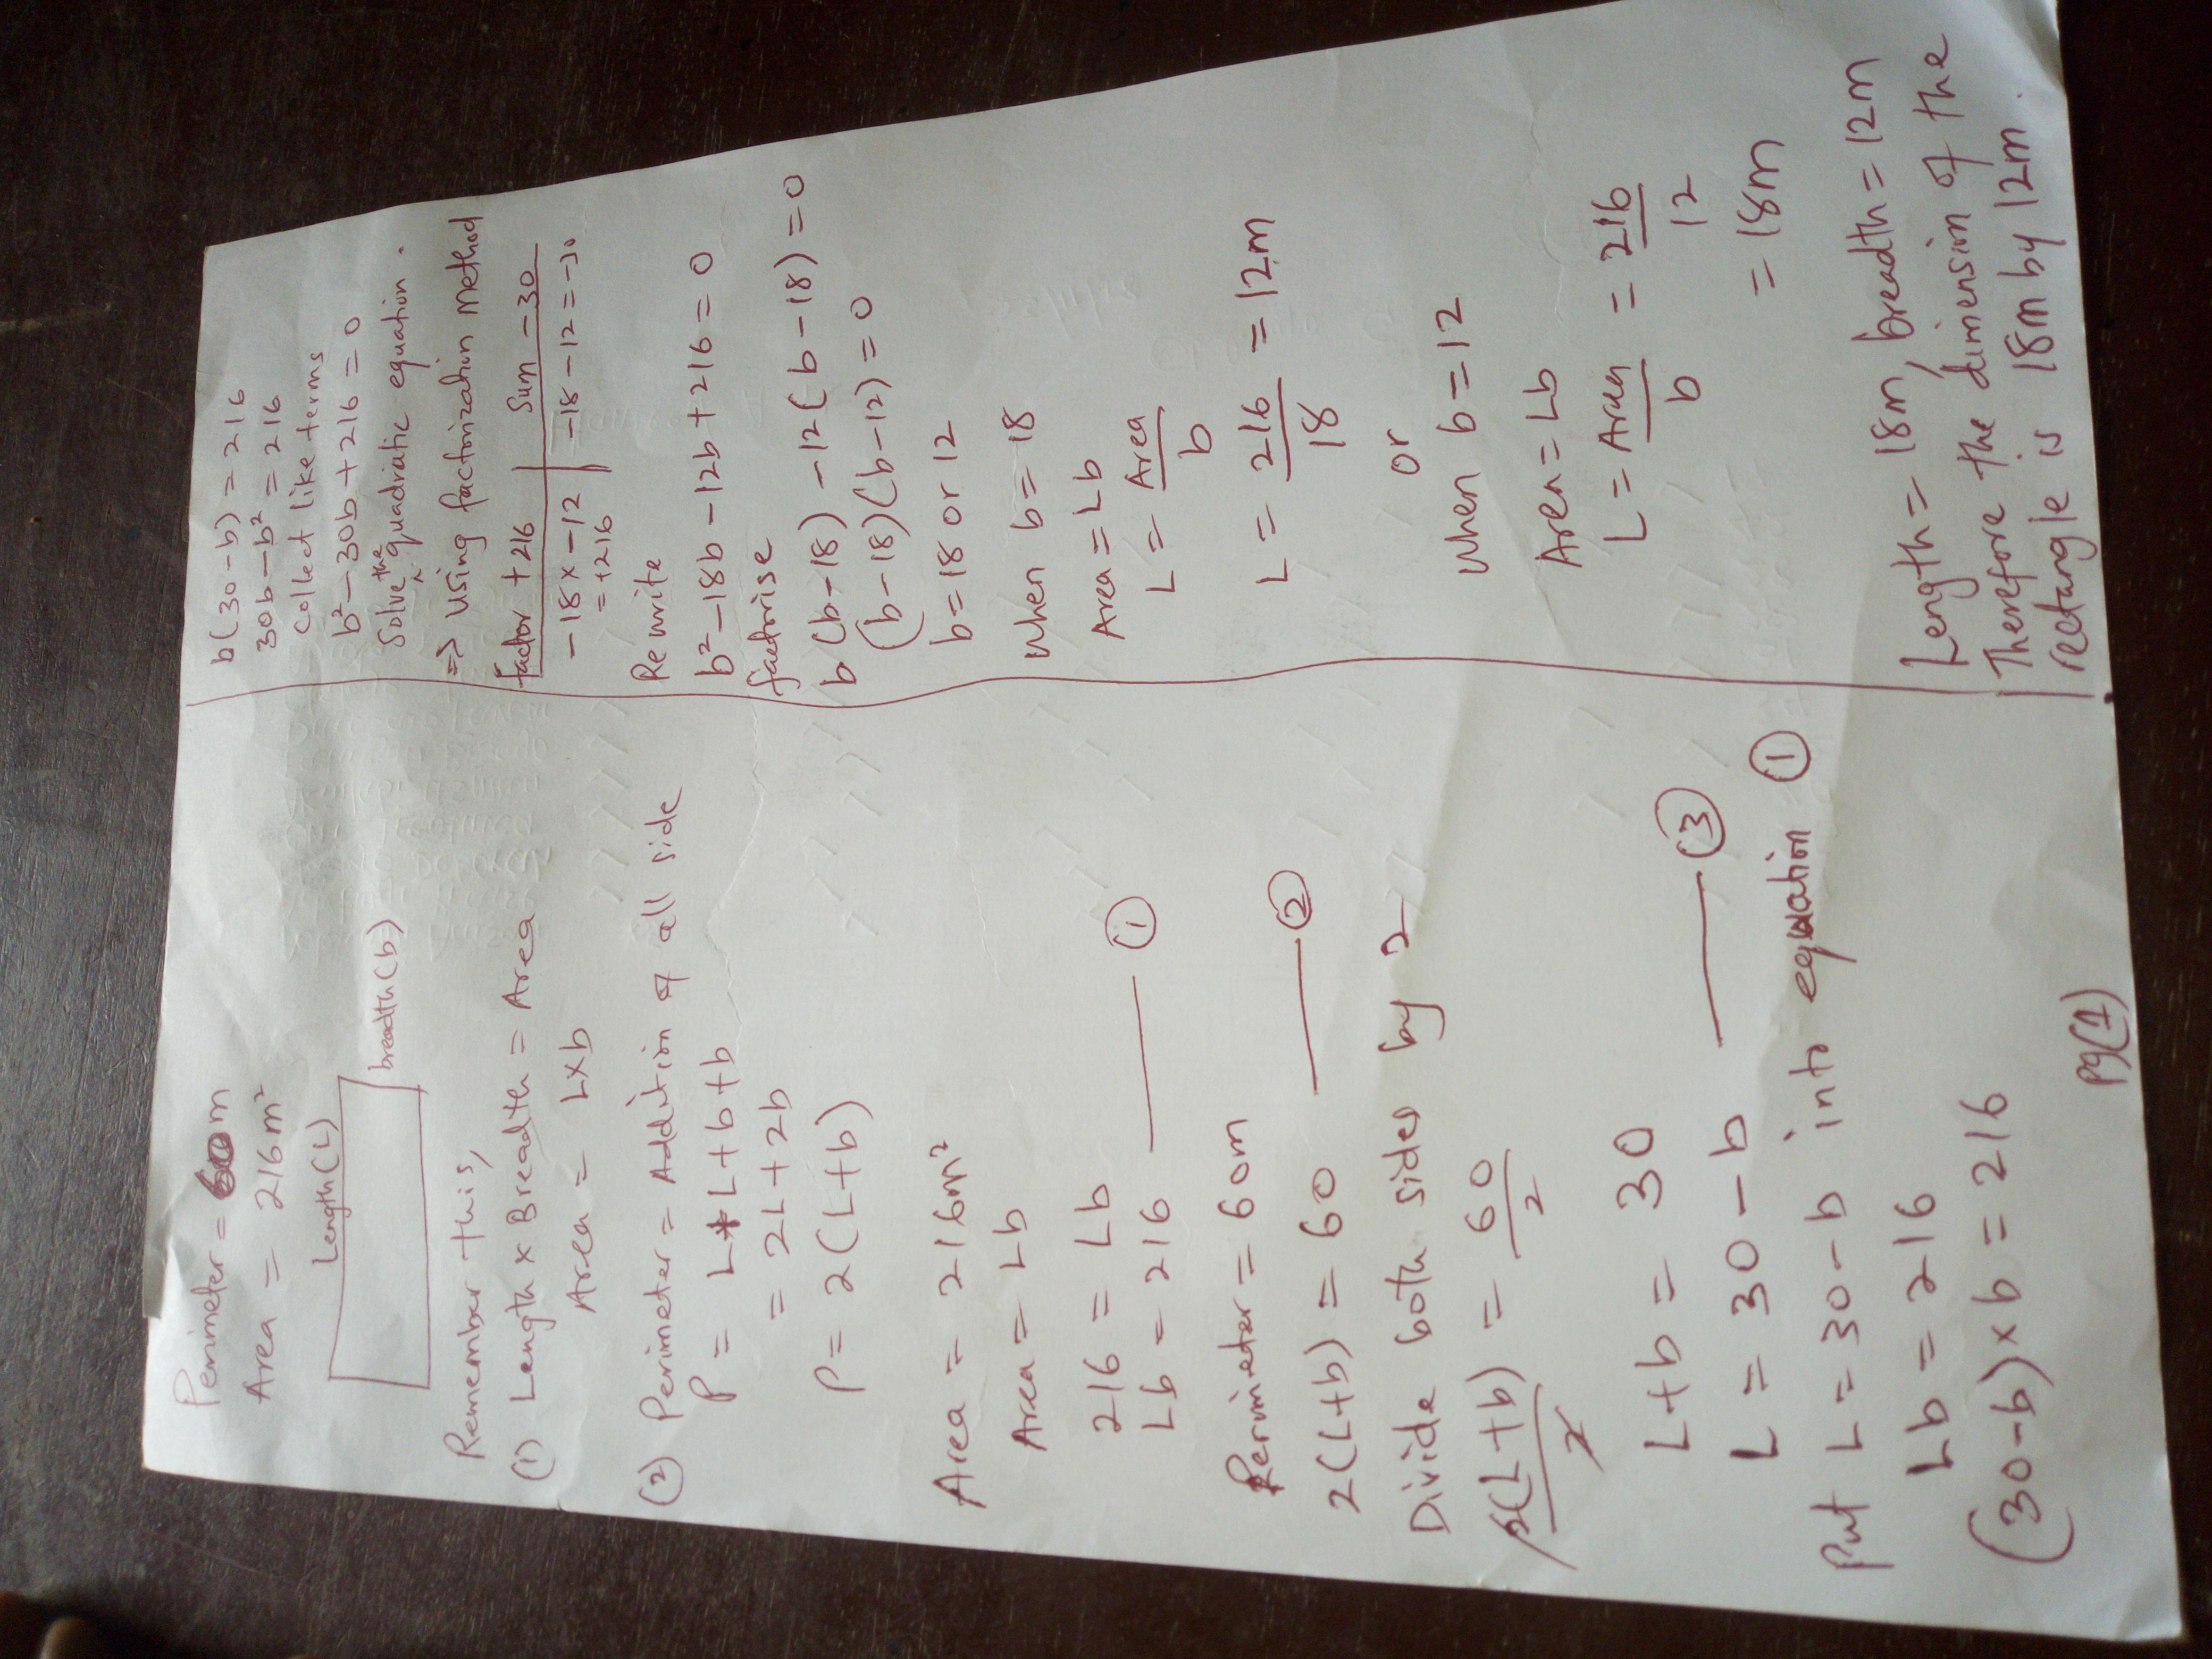 Perimeter = 60m
Area = 216m²
Length(L)
breadth(b)
Remember this,
(1) Length × Breadth = Area
Area = L×b
(2) Perimeter = Addition of all side
P = L+L+b+b
= 2L+2b
P = 2(L+b)
Area = 216m²
Area = Lb
216 = Lb
Lb = 216 ——— (1)
Perimeter = 60m
2(L+b) = 60 ——— (2)
Divide both sides by 2
2(L+b)/2 = 60/2
L+b = 30
L = 30-b ——— (3)
Put L = 30-b into equation (1)
Lb = 216
(30-b)×b = 216
pg(1)
b(30-b) = 216
30b-b² = 216
Collect like terms
b²-30b+216 = 0
Solve the quadratic equation.
=> Using factorization method
factor +216 | Sum -30
-18×-12 | -18-12=-30
=+216
Rewrite
b²-18b-12b+216=0
factorise
b(b-18)-12(b-18)=0
(b-18)(b-12)=0
b=18 or 12
When b=18
Area=Lb
L = Area/b
L = 216/18 = 12m
or
When b=12
Area=Lb
L = Area/b = 216/12
= 18m
Length = 18m, breadth = 12m
Therefore the dimension of the
rectangle is 18m by 12m.